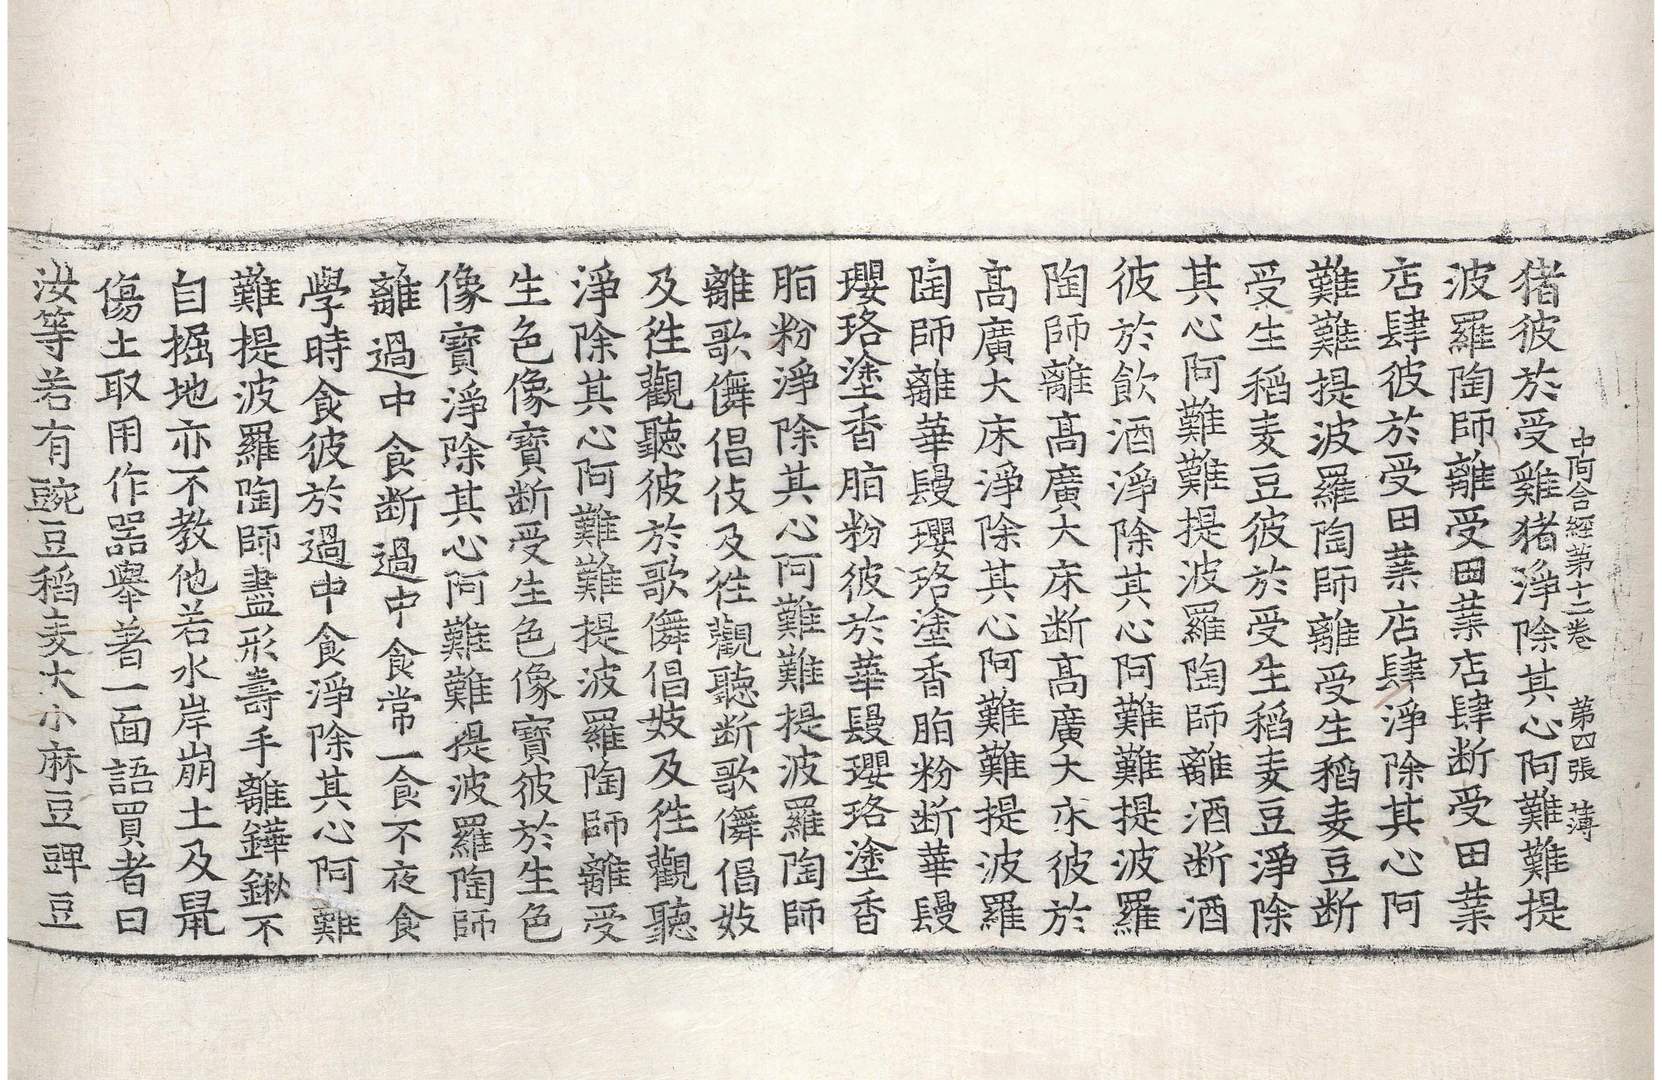 中阿含經第十二卷　第四張　薄
猪彼於受雞猪淨除其心阿難難提
波羅陶師離受田業店肆断受田業
店肆彼於受田業店肆淨除其心阿
難難提波羅陶師離受生稻麦豆断
受生稻麦豆彼於受生稻麦豆淨除
其心阿難難提波羅陶師離酒断酒
彼於飲酒淨除其心阿難難提波羅
陶師離高廣大床断高廣大床彼於
高廣大床淨除其心阿難難提波羅
陶師離華鬘瓔珞塗香脂粉断華鬘
瓔珞塗香脂粉彼於華鬘瓔珞塗香
脂粉淨除其心阿難難提波羅陶師
離歌儛倡伎及徃觀聽断歌儛倡妓
及徃觀聽彼於歌儛倡妓及徃觀聽
淨除其心阿難難提波羅陶師離受
生色像寶断受生色像寶彼於生色
像寶淨除其心阿難難提波羅陶師
離過中食断過中食常一食不夜食
學時食彼於過中食淨除其心阿難
難提波羅陶師盡形壽手離鏵鍬不
自掘地亦不教他若水岸崩土及鼠
傷土取用作器舉著一面語買者曰
汝等若有豌豆稻麦大小麻豆豍豆